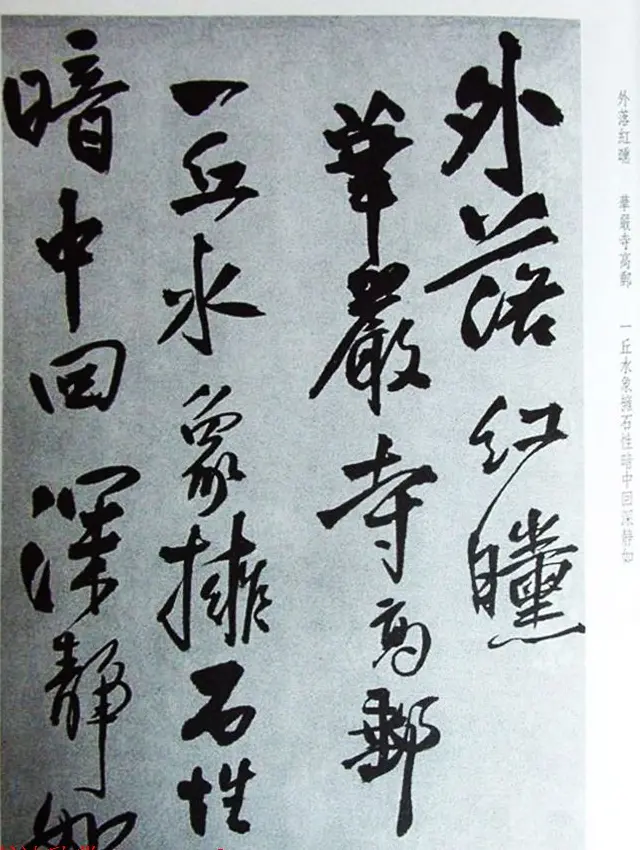 外落紅曛
華嚴寺高郵
一丘水象擁石性
暗中回深靜如
外落紅曛 華嚴寺高郵 一丘水象擁石性暗中回深靜如